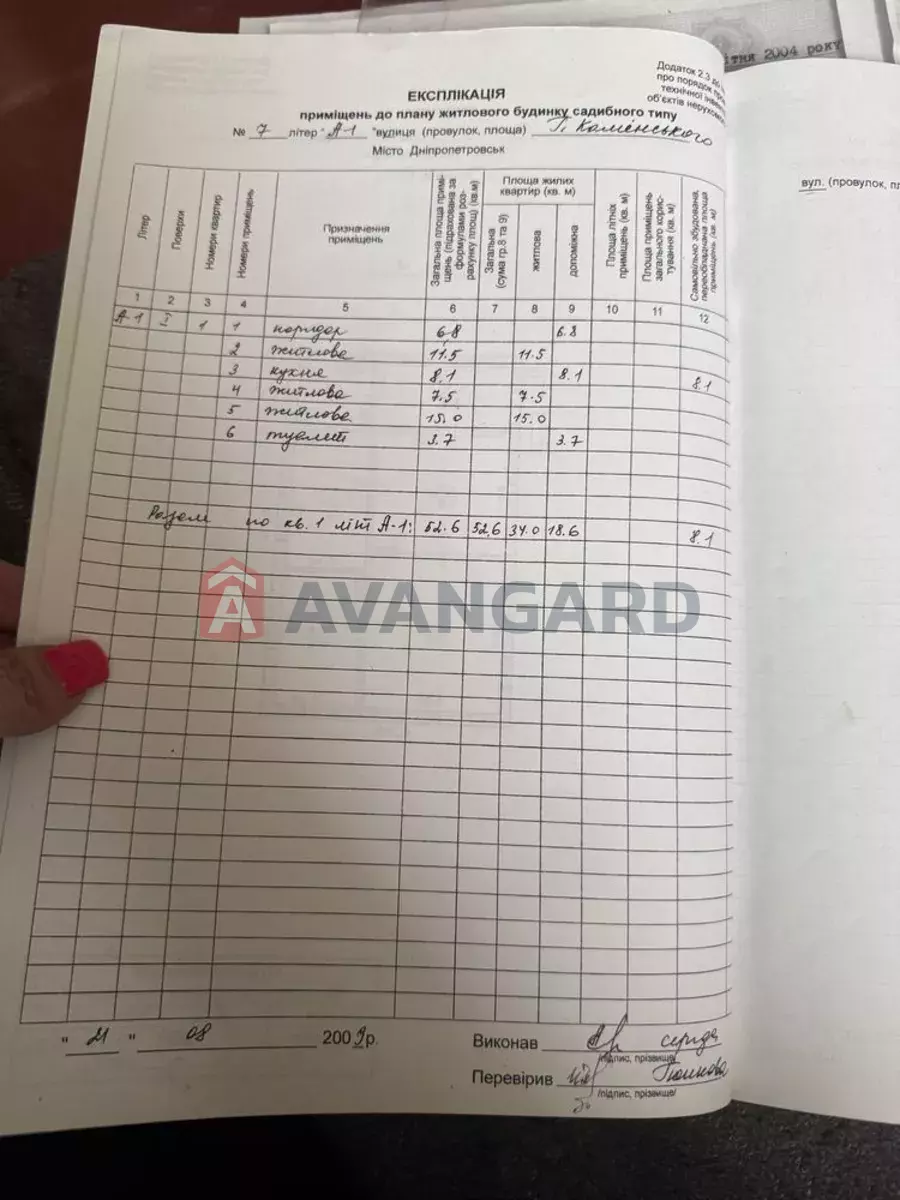 ітня 2004 року
Додаток 2.3 до
про порядок
технічної
об'єктів
ЕКСПЛІКАЦІЯ
приміщень до плану житлового будинку садибного типу
№ 7 літер "А-1 "вулиця (провулок, площа) Г. Каменського
Місто Дніпропетровськ
вул. (провулок, пл
Літер Поверхи Номери квартир Номери приміщень Призначення приміщень Загальна площа приміщень (підрахована за формулами розрахунку площ) (кв.м) Площа жилих квартир (кв. м) Загальна (сума гр.8 та 9) житлова допоміжна Площа літніх приміщень (кв. м) Площа приміщень загального користування (кв. м) Самовільно збудована, переобладнана площа приміщень (кв. м)
1 2 3 4 5 6 7 8 9 10 11 12
А-1 I 1 1 коридор 6.8 6.8
2 житлова 11.5 11.5
3 кухня 8.1 8.1 8.1
4 житлова 7.5 7.5
5 житлова 15.0 15.0
6 туалет 3.7 3.7
Разом по кв. 1 літ А-1: 52.6 52.6 34.0 18.6 8.1
AVANGARD
" 21 " 08 2009р.
Виконав середа
/підпис, прізвище/
Перевірив
/підпис, прізвище/